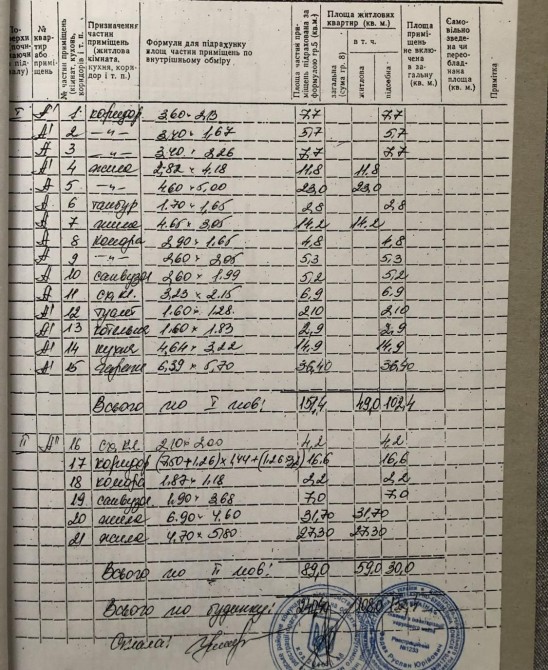 Призначення частини приміщення (житлова кімната, кухня, коридор і т. п.)
Формули для підрахунку площ частин приміщень по внутрішньому обміру
Площа житлових квартир (кв. м.)
загальна (сума гр. 8)
в т. ч.
житлова
підсобна
Площа приміщень не включена в загальну (кв. м.)
Самовільно зведена чи переобладнана площа (кв. м.)
Примітка
I А' 1 коридор 3,60 × 2,13 7,7 7,7
А' 2 —"— 3,40 × 1,67 5,7 5,7
А 3 —"— 3,40 × 2,26 7,7 7,7
А' 4 жила 2,82 × 4,18 11,8 11,8
А 5 —"— 4,60 × 5,00 23,0 23,0
А 6 тамбур 1,70 × 1,65 2,8 2,8
А 7 жила 4,65 × 3,05 14,2 14,2
А 8 комора 2,90 × 1,65 4,8 4,8
А 9 —"— 2,60 × 2,05 5,3 5,3
А 10 санвузол 2,60 × 1,99 5,2 5,2
А 11 сх. кл. 3,23 × 2,15 6,9 6,9
А' 12 туалет 1,60 × 1,28 2,10 2,10
А' 13 котельня 1,60 × 1,83 2,9 2,9
А' 14 кухня 4,64 × 3,22 14,9 14,9
А' 15 6,39 × 5,70 36,40 36,40
Всього по I пов: 151,4 49,0 102,4
II А" 16 сх. кл. 2,10 × 2,00 4,2 4,2
17 коридор 16,6 16,6
18 комора 1,87 × 1,18 2,2 2,2
19 санвузол 1,90 × 3,68 7,0 7,0
20 жила 6,90 × 4,60 31,70 31,70
21 жила 4,70 × 5,80 27,30 27,30
Всього по II пов: 89,0 59,0 30,0
Всього по будинку:
Склала: